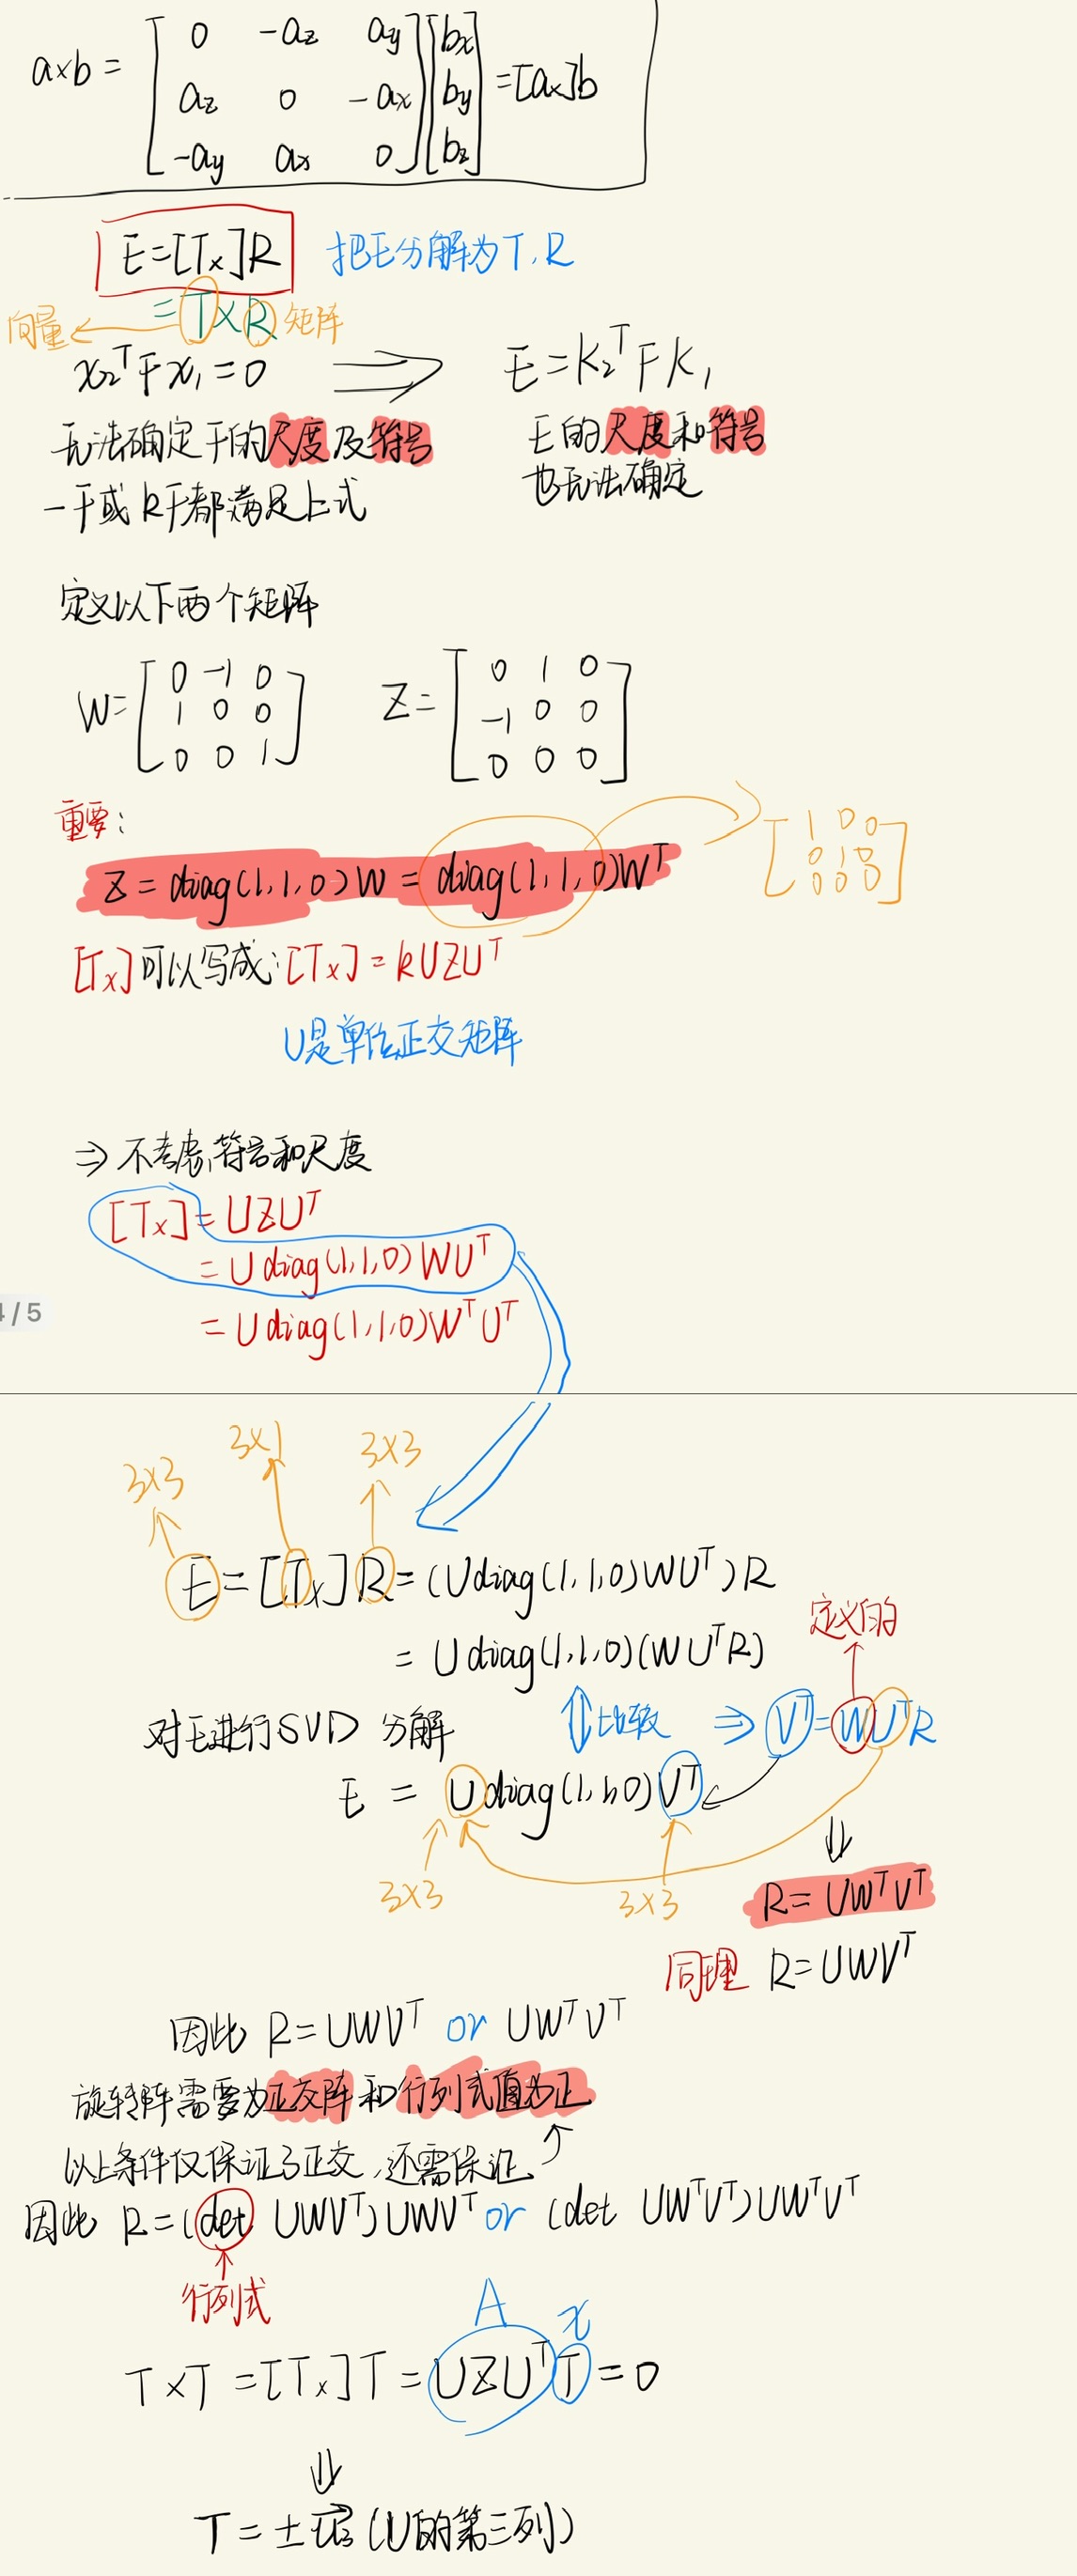 a×b = [0 -az ay; az 0 -ax; -ay ax 0][bx; by; bz] = [a×]b
E=[T×]R 把E分解为T,R
=T×R
向量 矩阵
x₂ᵀFx₁=0 ⟹ E=K₂ᵀFK₁
无法确定F的尺度及符号
-F或kF都满足上式
E的尺度和符号
也无法确定
定义以下两个矩阵
W=[0 -1 0; 1 0 0; 0 0 1] Z=[0 1 0; -1 0 0; 0 0 0]
重要:
Z = diag(1,1,0)W = diag(1,1,0)Wᵀ
[1 0 0; 0 1 0; 0 0 0]
[T×]可以写成:[T×]=kUZUᵀ
U是单位正交矩阵
⇒ 不考虑符号和尺度
[T×]=UZUᵀ
=U diag(1,1,0)WUᵀ
=U diag(1,1,0)WᵀUᵀ
/5
3×3 3×1 3×3
E=[T×]R=(U diag(1,1,0)WUᵀ)R
=U diag(1,1,0)(WUᵀR)
定义的
对E进行SVD 分解
⇕比较 ⇒ Vᵀ=WUᵀR
E = U diag(1,1,0)Vᵀ
3×3 3×3
⇓
R=UWᵀVᵀ
同理 R=UWVᵀ
因此 R=UWVᵀ or UWᵀVᵀ
旋转阵需要为正交阵和行列式值为正
以上条件仅保证了正交,还需保证
因此 R=(det UWVᵀ)UWVᵀ or (det UWᵀVᵀ)UWᵀVᵀ
行列式
A x
T×T=[T×]T=UZUᵀT=0
⇓
T=±u₃(U的第三列)